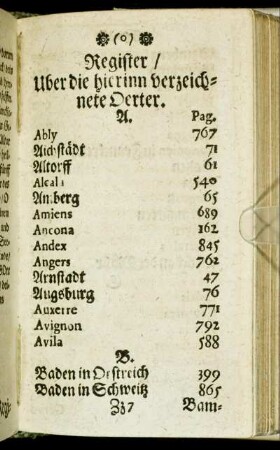 (o)
Register /
Uber die hierinn verzeich-
nete Oerter.
A. Pag.
Ably 767
Aichstädt 71
Altorff 61
Alcala 540
Amberg 65
Amiens 689
Ancona 162
Andex 845
Angers 762
Arnstadt 47
Augsburg 76
Auxerre 771
Avignon 792
Avila 588
B.
Baden in Oestreich 399
Baden in Schweitz 865
Zz7 Bam-